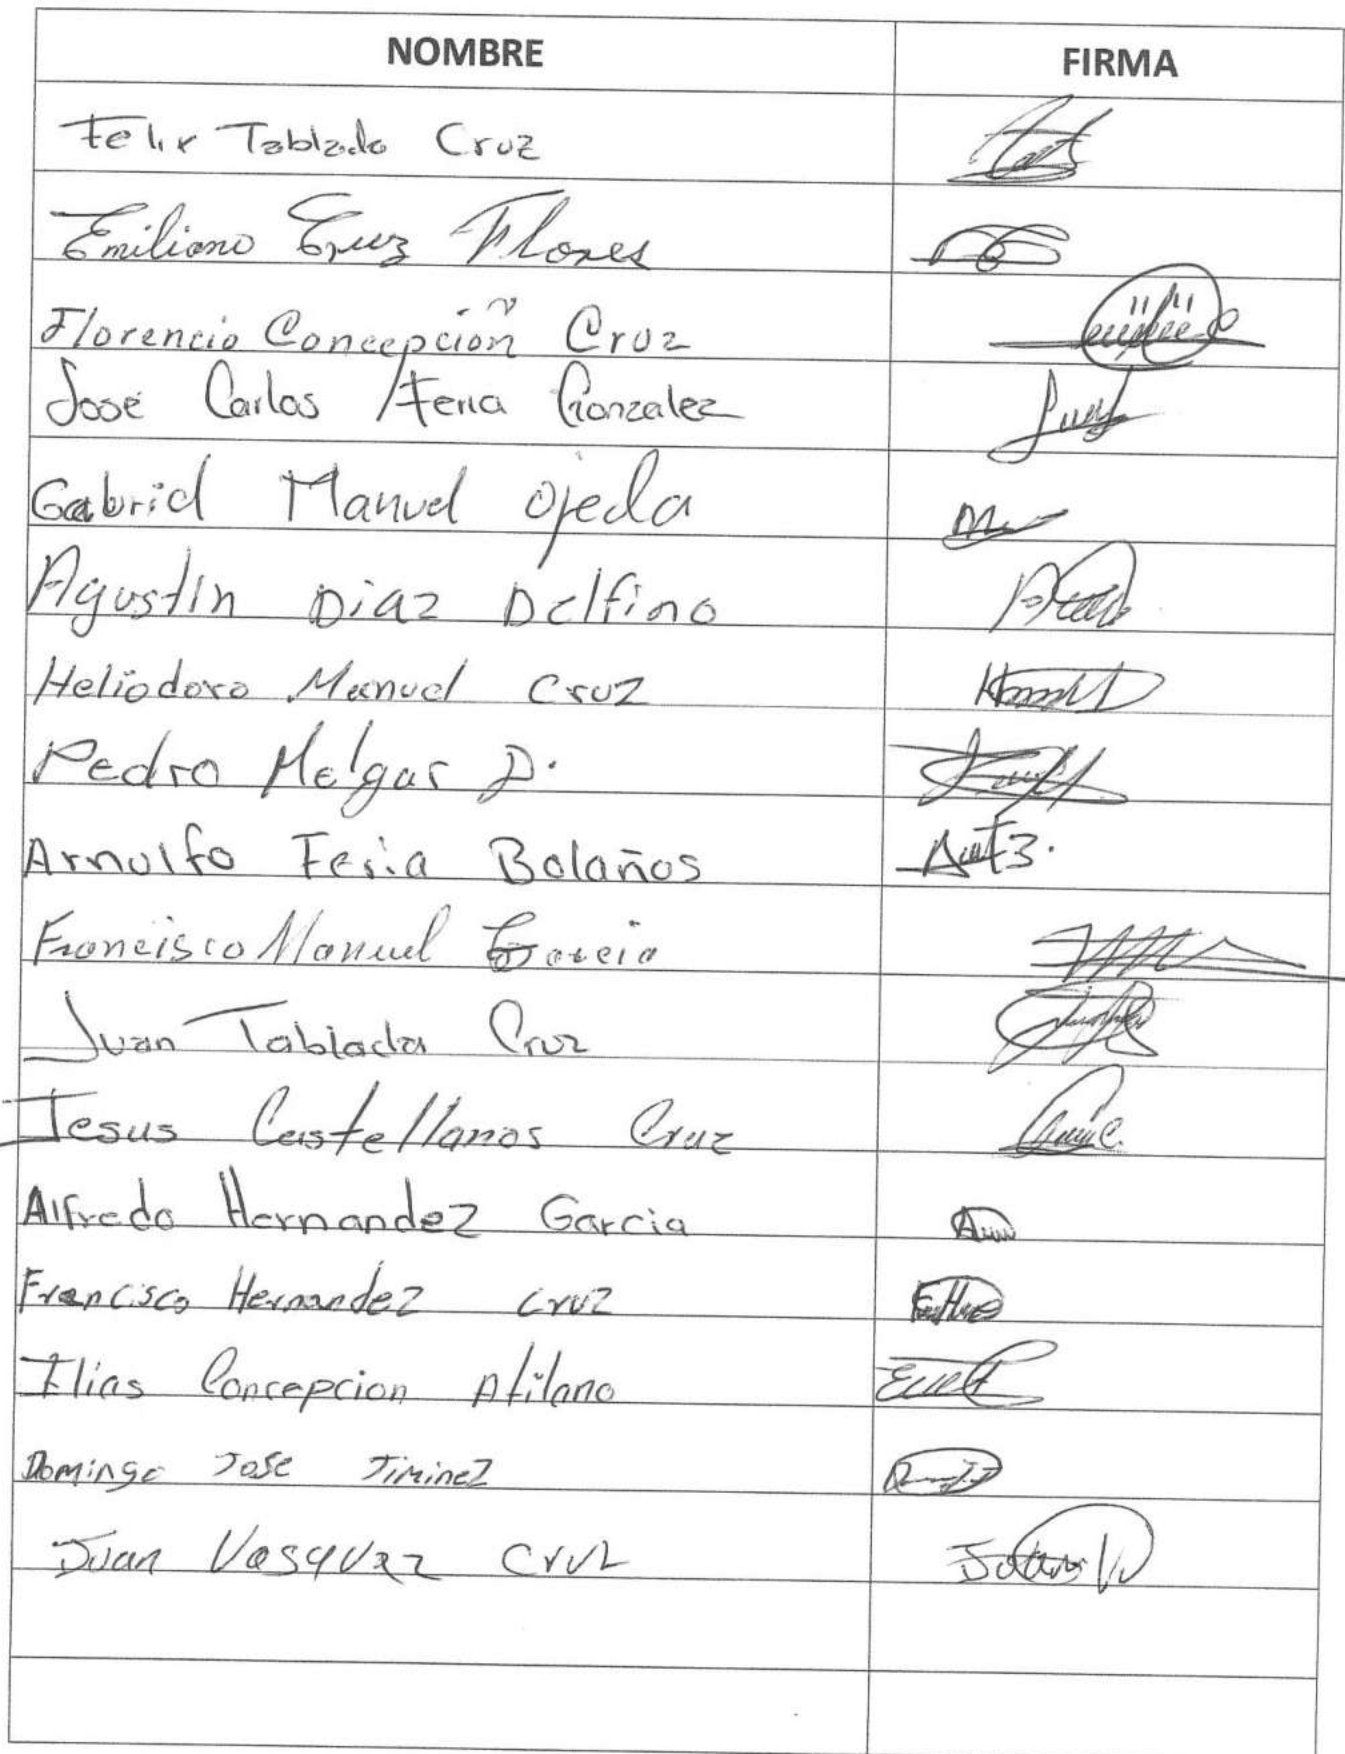 NOMBRE FIRMA
Felix Tablada Cruz
Emiliano Cruz Flores
Florencio Concepción Cruz
José Carlos Feria Gonzalez
Gabriel Manuel Ojeda
Agustin Diaz Delfino
Heliodoro Manuel Cruz
Pedro Melgar D.
Arnulfo Feria Bolaños
Francisco Manuel Garcia
Juan Tablada Cruz
Jesus Castellanos Cruz
Alfredo Hernandez Garcia
Francisco Hernandez Cruz
Elias Concepcion Atilano
Domingo Jose Jiminez
Juan Vasquez Cruz